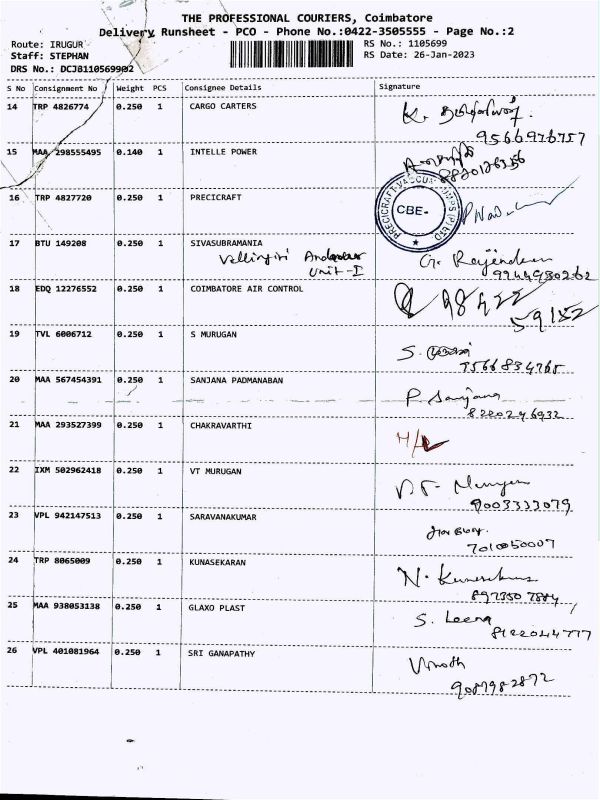 THE PROFESSIONAL COURIERS, Coimbatore
Delivery Runsheet - PCO - Phone No.:0422-3505555 - Page No.:2
Route: IRUGUR RS No.: 1105699
Staff: STEPHAN RS Date: 26-Jan-2023
DRS No.: DCJB110569902
S No Consignment No Weight PCS Consignee Details Signature
14 TRP 4826774 0.250 1 CARGO CARTERS K.
9566976757
15 MAA 298555495 0.140 1 INTELLE POWER
16 TRP 4827720 0.250 1 PRECICRAFT
PRECICRAFT VACCUUM PUMPS (P) LTD CBE-
17 BTU 149208 0.250 1 SIVASUBRAMANIA G. Rajendran
Vellingiri Andavar
Unit-I
9944930262
18 EDQ 12276552 0.250 1 COIMBATORE AIR CONTROL 98422
59182
19 TVL 6006712 0.250 1 S MURUGAN S.
20 MAA 567454391 0.250 1 SANJANA PADMANABAN P. Sanjana
8220296932
21 MAA 293527399 0.250 1 CHAKRAVARTHI
22 IXM 502962418 0.250 1 VT MURUGAN V.T. Murugan
9003333079
23 VPL 942147513 0.250 1 SARAVANAKUMAR
7010050007
24 TRP 8065009 0.250 1 KUNASEKARAN N. Kunasekaran
8973507884
25 MAA 938053138 0.250 1 GLAXO PLAST S. Leena
8122044777
26 VPL 401081964 0.250 1 SRI GANAPATHY Vinoth
9087982872